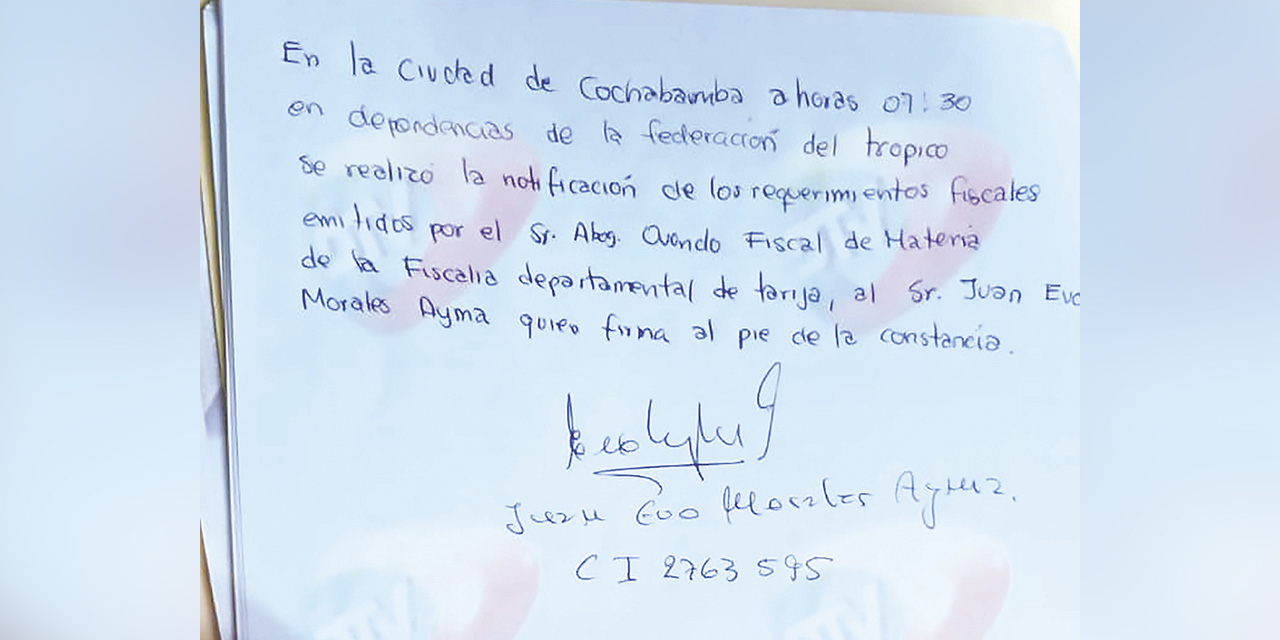 En la Ciudad de Cochabamba a horas 07:30
en dependencias de la federación del tropico
se realizó la notificación de los requerimientos fiscales
emitidos por el Sr. Abog. Ovando Fiscal de Materia
de la Fiscalia departamental de tarija, al Sr. Juan Evo
Morales Ayma quien firma al pie de la constancia.
Juan Evo Morales Ayma.
CI 2763595